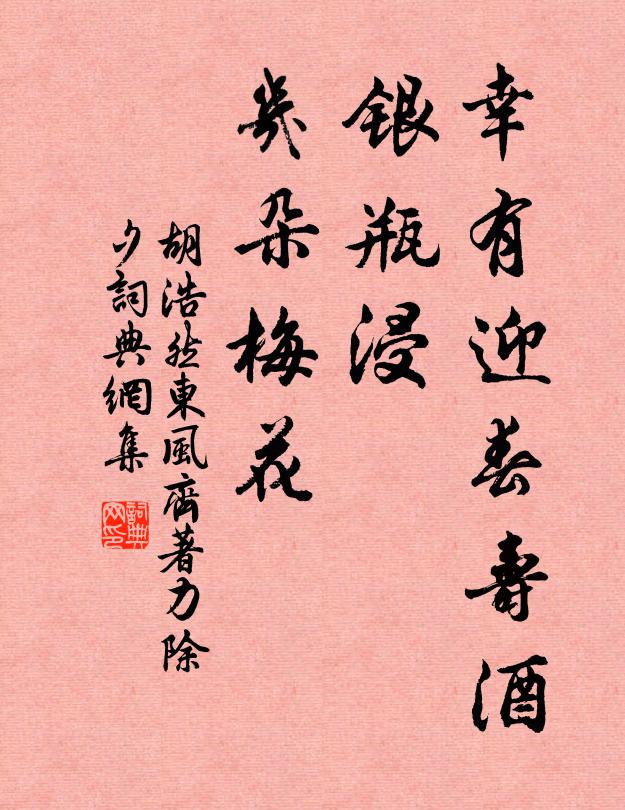 幸有迎春壽酒
銀瓶浸
幾朵梅花
胡浩然東風齊著力除
夕詞典網集
詞典網印